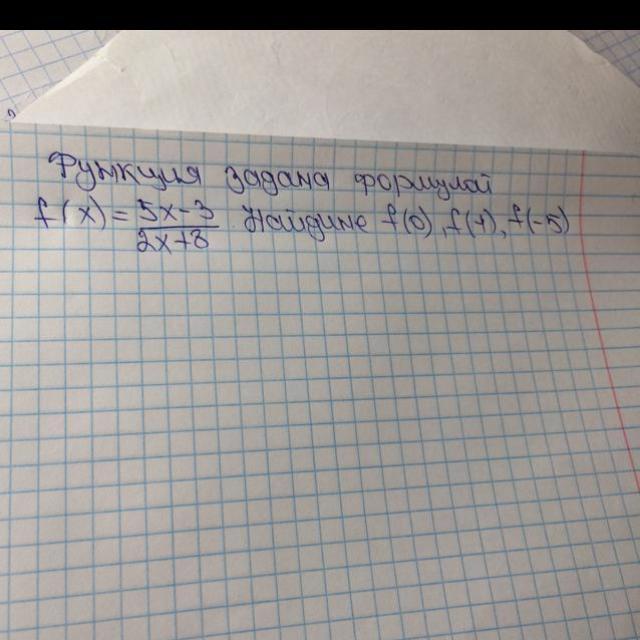 Функция задана формулой
f(x) = 5x-3/2x+8. Найдите f(0), f(1), f(-5)